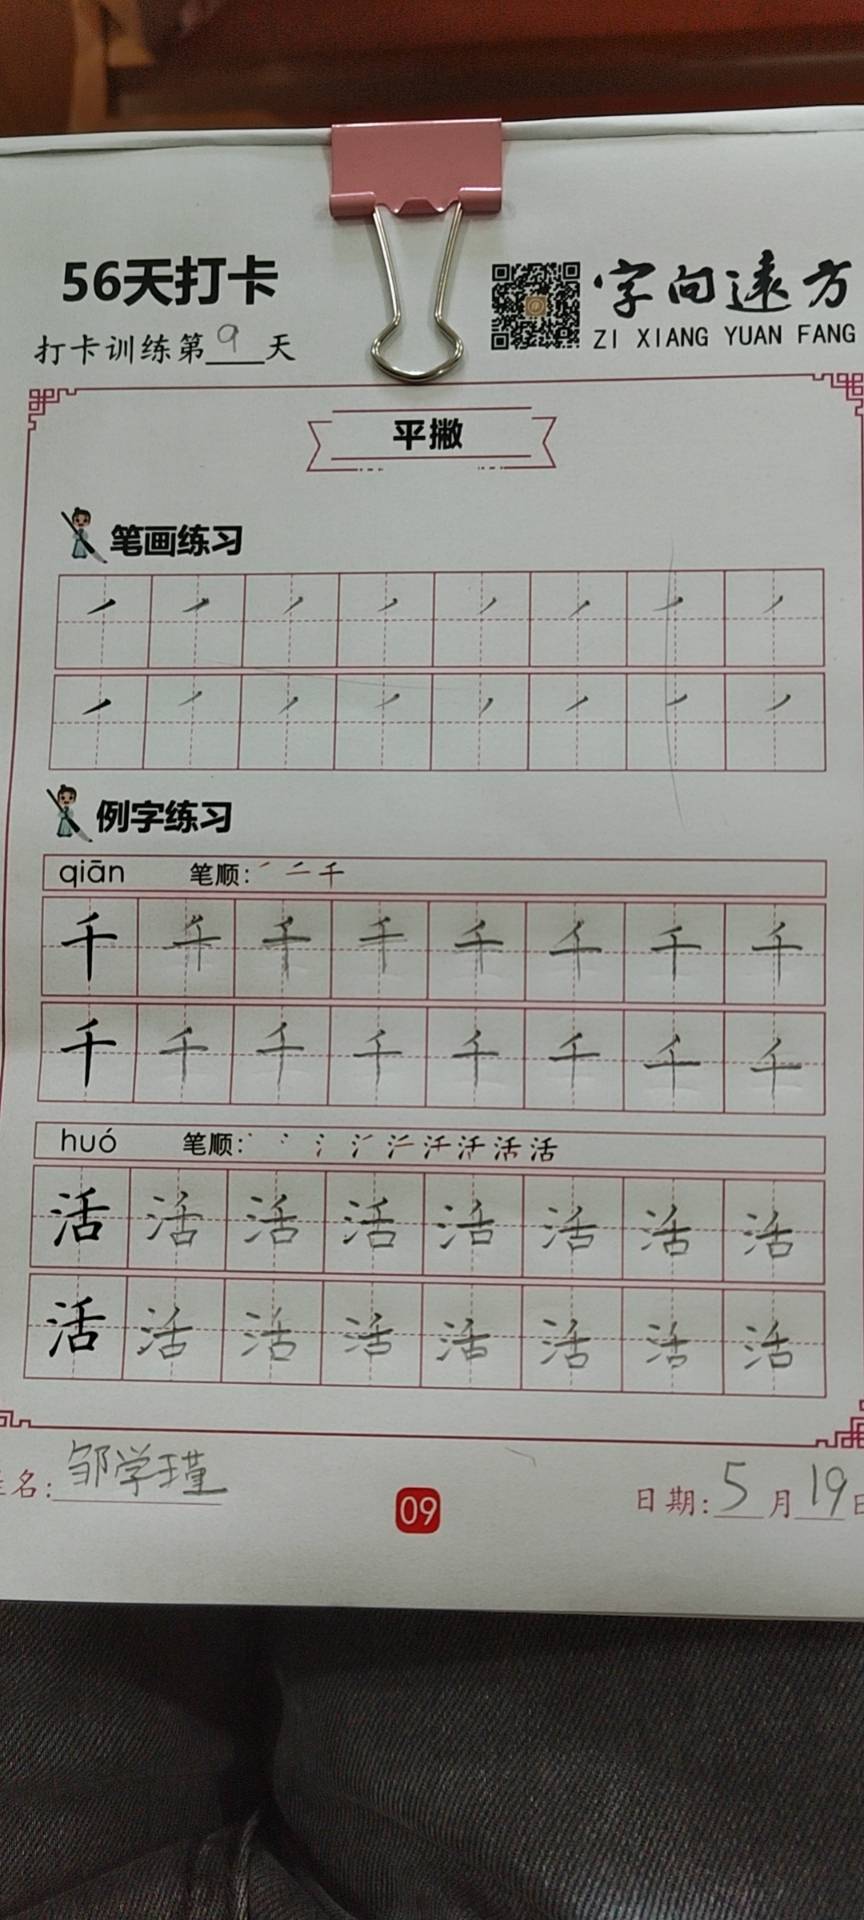 56天打卡
字向远方
ZI XIANG YUAN FANG
打卡训练第9天
平撇
笔画练习
例字练习
qiān 笔顺: ㇒ 二 千
千 千 千 千 千 千 千 千
千 千 千 千 千 千 千 千
huó 笔顺: 活
活 活 活 活 活 活 活 活
活 活 活 活 活 活 活 活
名: 邹学瑾
09
日期: 5月19日